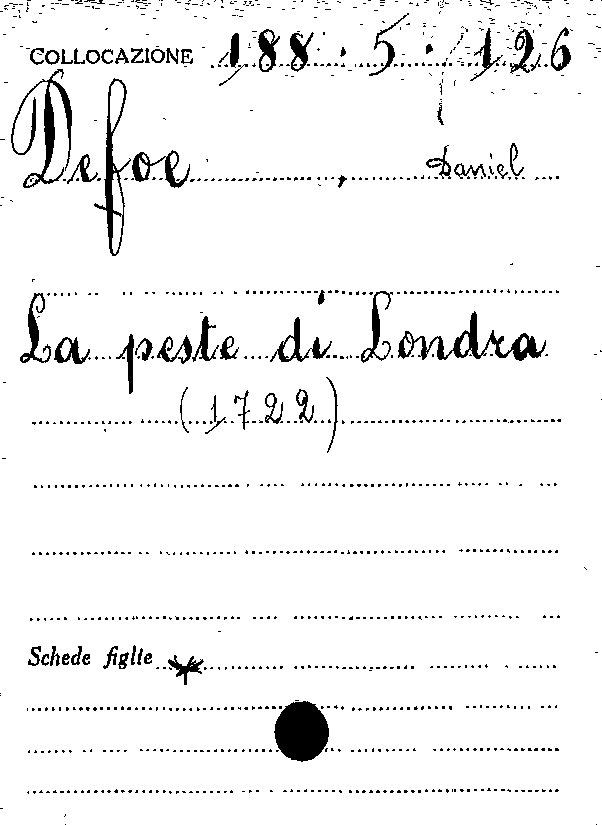 COLLOCAZIONE 188.5.126
Defoe, Daniel
La peste di Londra
(1722)
Schede figlie